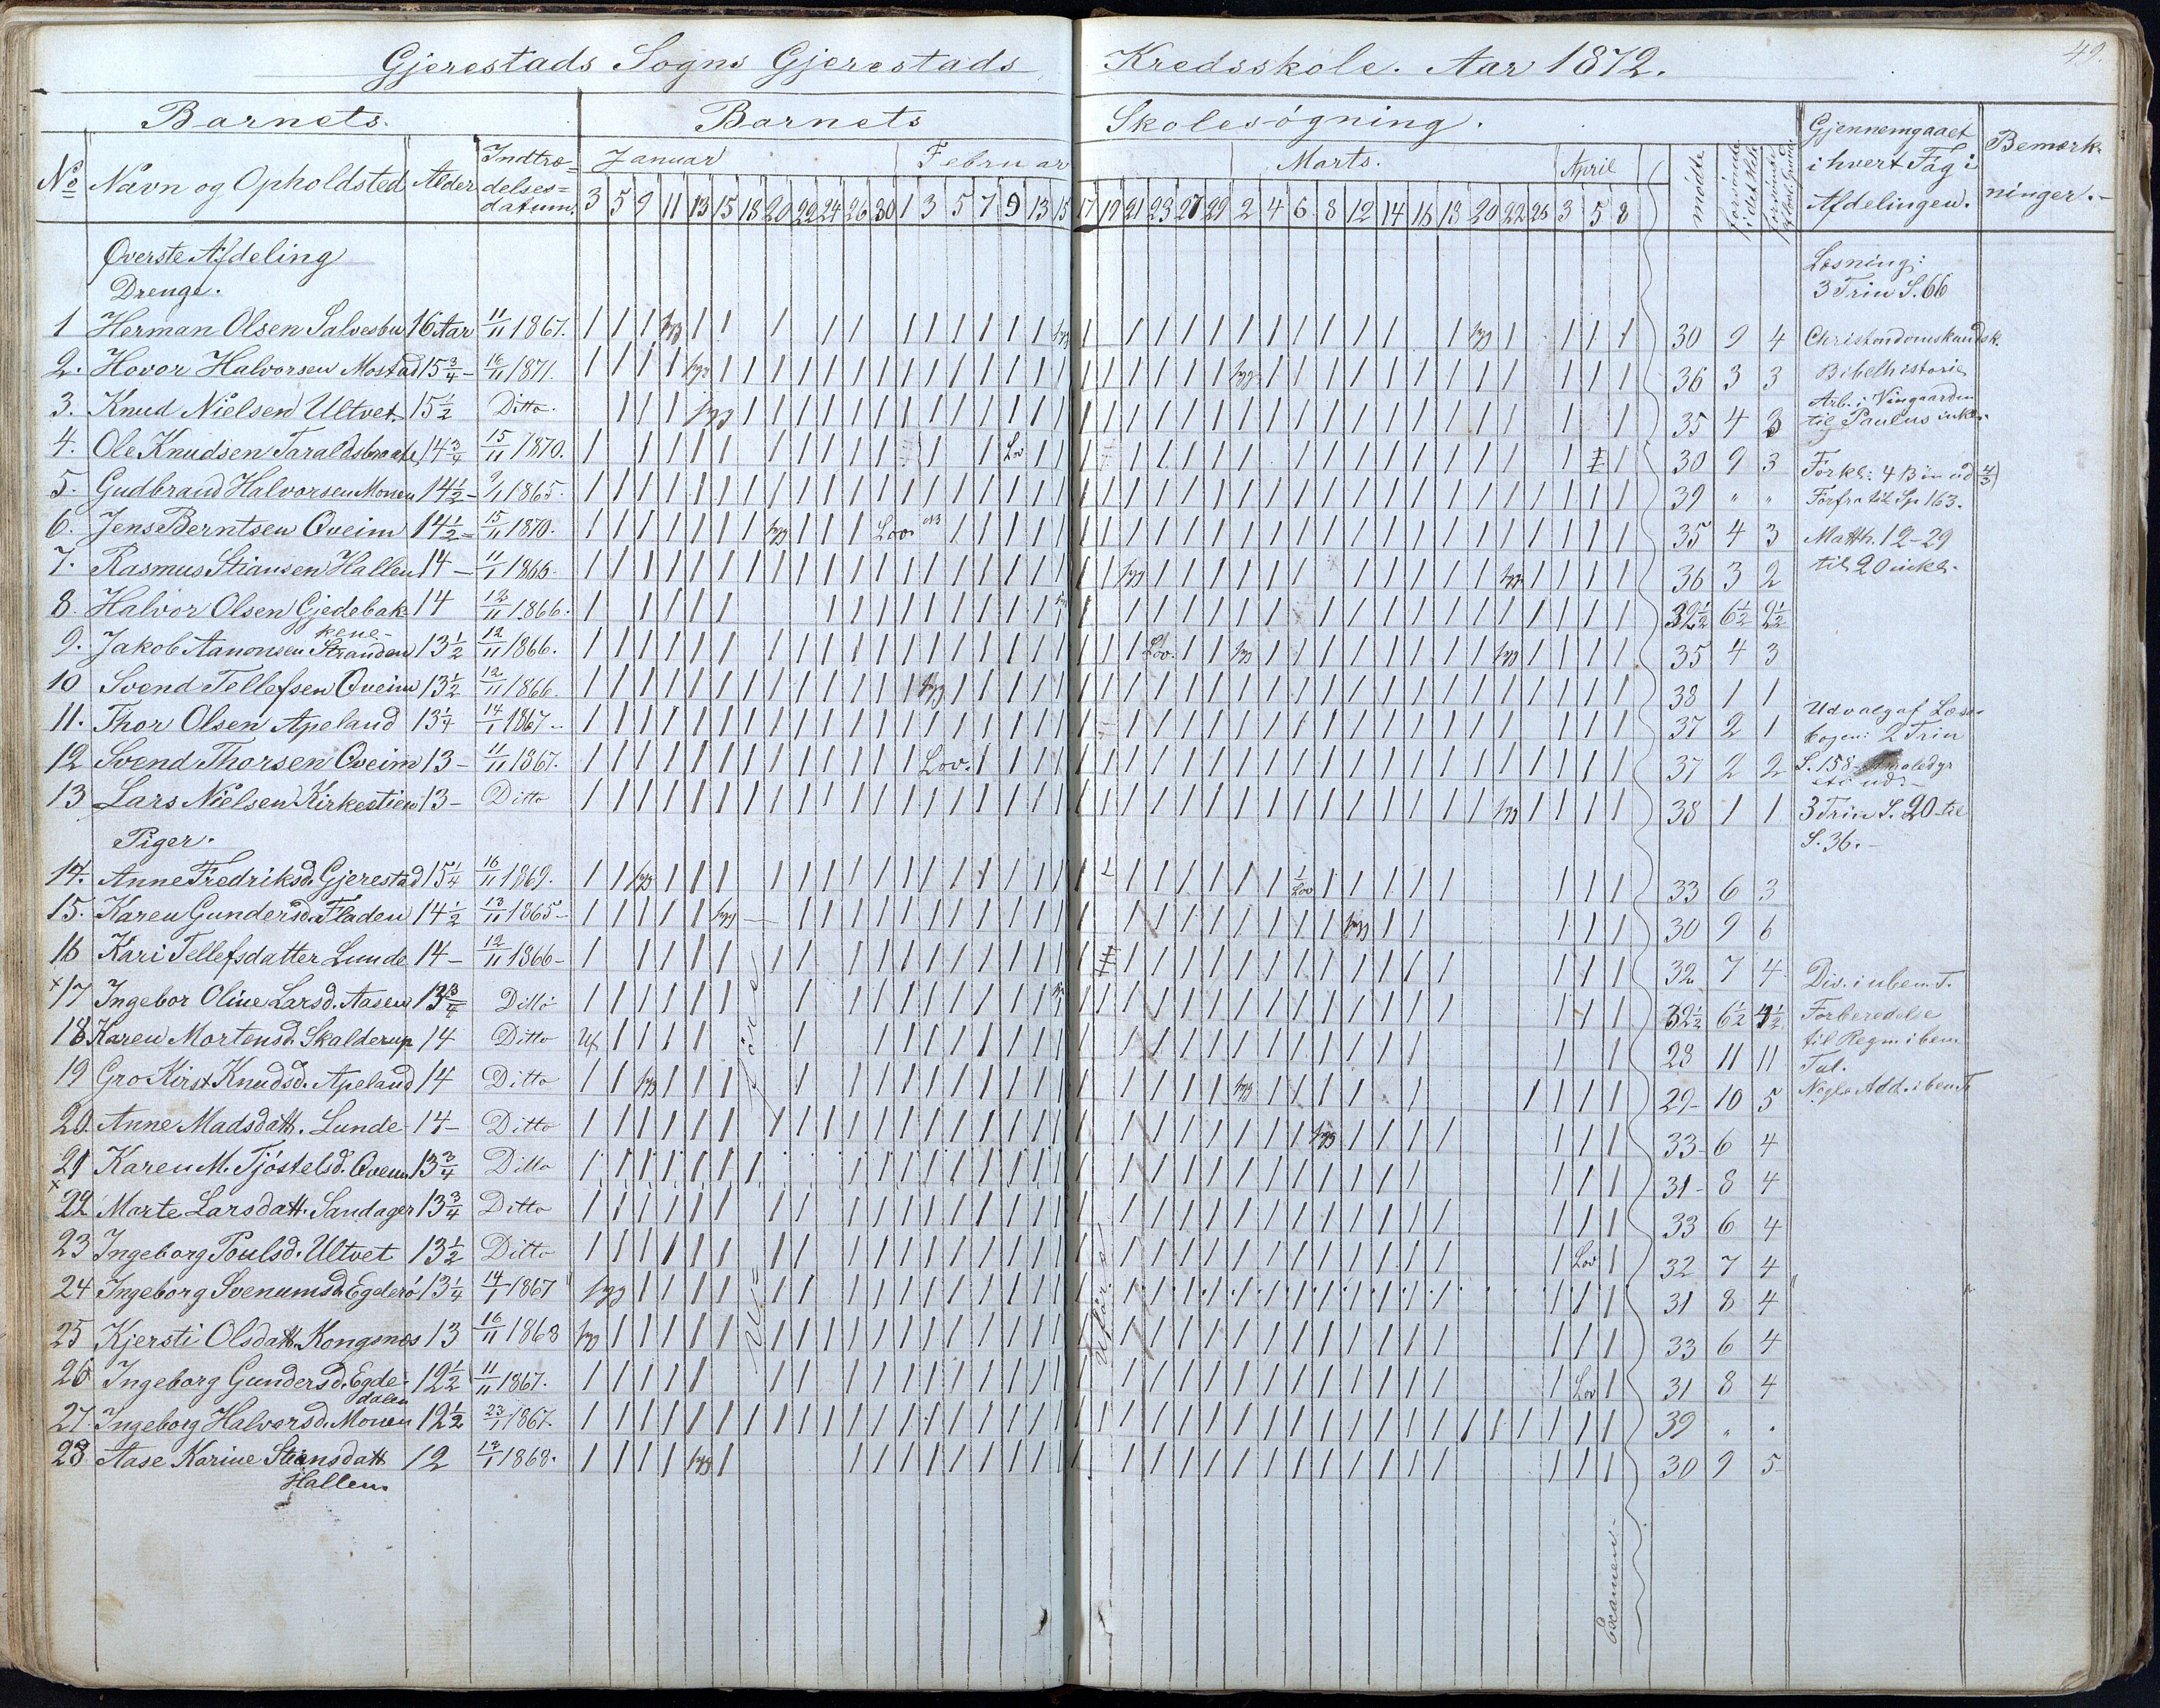 Gjerestads Sogns Gjerestads Kredsskole. Aar 1872.
49.
Barnets. Barnets Skolesøgning.
No Navn og Opholdsted Alder Indtrædelsesdatum.
Januar Februar Marts. April
3 5 9 11 13 15 18 20 22 24 26 30 1 3 5 7 9 13 15 17 19 21 23 27 29 2 4 6 8 12 14 16 18 20 22 26 3 5 8
mødte forsømte i det Hele
Gjennemgaaet i hvert Fag i Afdelingen.
Bemærkninger.
Øverste Afdeling
Drenge.
1 Herman Olsen Salvesbu 16 Aar 11/11 1867. 30 9 4
2. Hovor Halvorsen Mostad 15 3/4 - 16/11 1871. 36 3 3
3. Knud Nielsen Ultvet. 15 1/2 Ditto. 35 4 3
4. Ole Knudsen Taraldsbraate 14 3/4 15/11 1870. Lov 30 9 3
5. Gudbrand Halvorsen Monen 14 1/2 - 9/1 1865. 39 " "
6. Jens Berntsen Qveim 14 1/2 15/11 1870. syg Lov. 35 4 3
7. Rasmus Stiansen Hallen 14 - 11/1 1866. syg syg 36 3 2
8. Halvor Olsen Gjedebakkene 14 12/11 1866. 32 1/2 6 1/2 2 1/2
9. Jakob Aanonsen Stranden 13 1/2 12/11 1866. Lov. syg syg 35 4 3
10 Svend Tellefsen Qveim 13 1/2 12/11 1866. syg 38 1 1
11. Thor Olsen Apeland 13 1/4 14/1 1867 - 37 2 1
12 Svend Thorsen Qveim 13 - 11/11 1867. Lov. 37 2 2
13 Lars Nielsen Kirkestien 13 - Ditto syg 38 1 1
Piger.
14. Anne Fredriksd. Gjerestad 15 1/4 16/11 1869. syg Lov 33 6 3
15. Karen Gundersd. Fladen 14 1/2 13/11 1865 - syg syg 30 9 6
16 Kari Tellefsdatter Lunde 14 - 12/11 1866 - 32 7 4
x 17 Ingebor Oline Larsd. Aasen 13 3/4 Ditto 32 1/2 6 1/2 4 1/2
18 Karen Mortensd. Skalderup 14 Ditto 28 11 11
19 Gro Kirst. Knudsd. Apeland 14 Ditto syg syg 29 - 10 5
20. Anne Madsdatt. Lunde 14 - Ditto syg 33 - 6 4
21 Karen M. Tjöstelsd. Qveim 13 3/4 Ditto 31 - 8 4
x 22 Marte Larsdatt. Sandager 13 3/4 Ditto 33 6 4
23 Ingeborg Poulsd. Ultvet 13 1/2 Ditto Lov 32 7 4
24 Ingeborg Svenumsd. Egderö 13 1/4 14/1 1867 syg 31 8 4
25 Kjersti Olsdatt. Kongsnæs 13 16/11 1868 syg 33 6 4
26 Ingeborg Gundersd. Egdedalen 12 1/2 11/11 1867. Lov 31 8 4
27. Ingeborg Halvorsd. Monen 12 1/2 23/1 1867. 39 " .
28 Aase Karine Stiansdatt Hallen 12 13/1 1868. syg 30 9 5
Uføre
Uføre
Examen
Læsning:
3 Trin S. 66
Christendomskundsk.
Bibelhistorie
Arb. i Vingaarden
til Paulus inkl.
Forkl: 4 Bøn ud
Forfra til Sp. 163.
Matth. 12-29
til 20 inkl.
Udvalg af Læsebogen: 2 Trin
S. 158
3 Trin S. 20 til
S. 36. -
Div. i uben. T.
Forberedelse
til Regn i ben.
Tal.
Nogle Add. i ben. T.